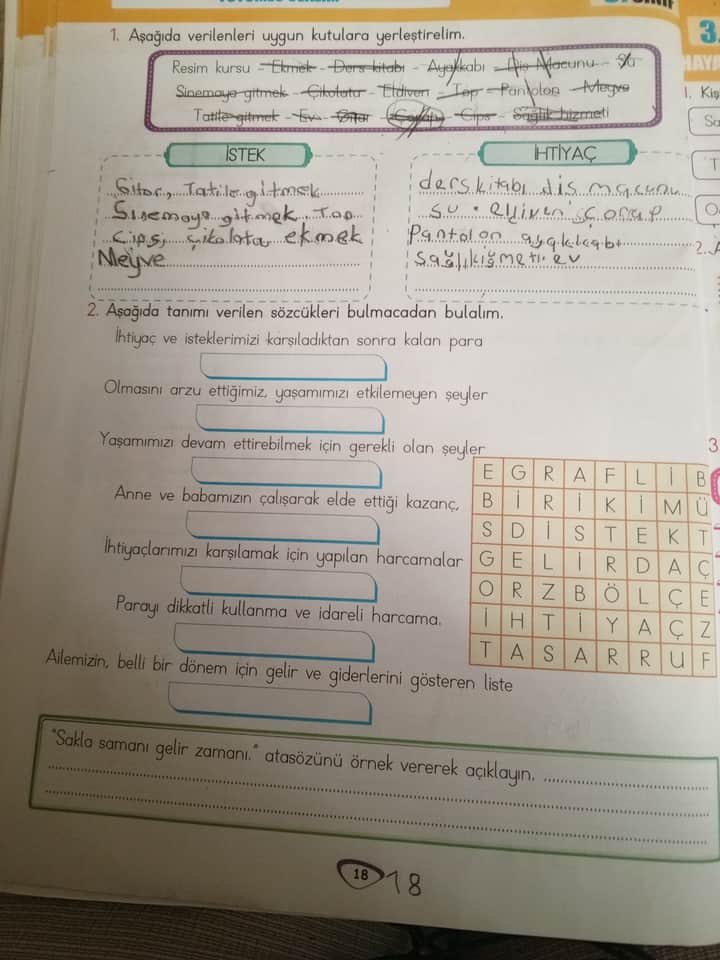 1. Aşağıda verilenleri uygun kutulara yerleştirelim.
Resim kursu - Ekmek - Ders kitabı - Ayakkabı - Diş Macunu - Su
Sinemaya gitmek - Çikolata - Eldiven - Top - Pantolon - Meyve
Tatile gitmek - Ev - Gitar - Çorap - Cips - Sağlık hizmeti
İSTEK
Gitar, Tatile gitmek
Sinemaya gitmek, Top
Cips, çikolata ekmek
Meyve
İHTİYAÇ
ders kitabı diş macunu
su. eldiven çorap
Pantolon ayakkabı
ev
2. Aşağıda tanımı verilen sözcükleri bulmacadan bulalım.
İhtiyaç ve isteklerimizi karşıladıktan sonra kalan para
Olmasını arzu ettiğimiz, yaşamımızı etkilemeyen şeyler
Yaşamımızı devam ettirebilmek için gerekli olan şeyler
Anne ve babamızın çalışarak elde ettiği kazanç,
İhtiyaçlarımızı karşılamak için yapılan harcamalar
Parayı dikkatli kullanma ve idareli harcama.
Ailemizin, belli bir dönem için gelir ve giderlerini gösteren liste
E G R A F L İ B
B İ R İ K İ M Ü
S D İ S T E K T
G E L İ R D A Ç
O R Z B Ö L Ç E
İ H T İ Y A Ç Z
T A S A R R U F
"Sakla samanı gelir zamanı." atasözünü örnek vererek açıklayın.
18
18
3.
HAYA
1. Kiş
Sa
T
2. A
3